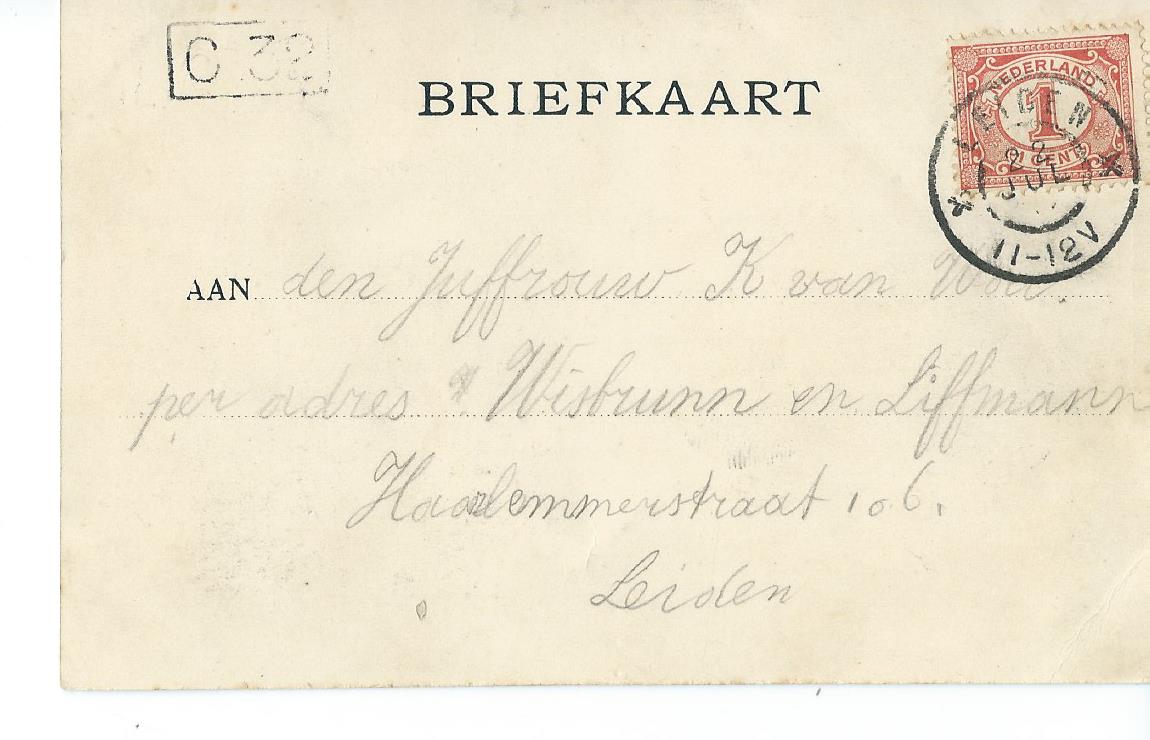 C 32
BRIEFKAART
NEDERLAND
1
1 CENT
LEIDEN
JUL
11-12V
AAN den Juffrouw K van
per adres Wisbrunn en Liffmann
Haarlemmerstraat 106.
Leiden